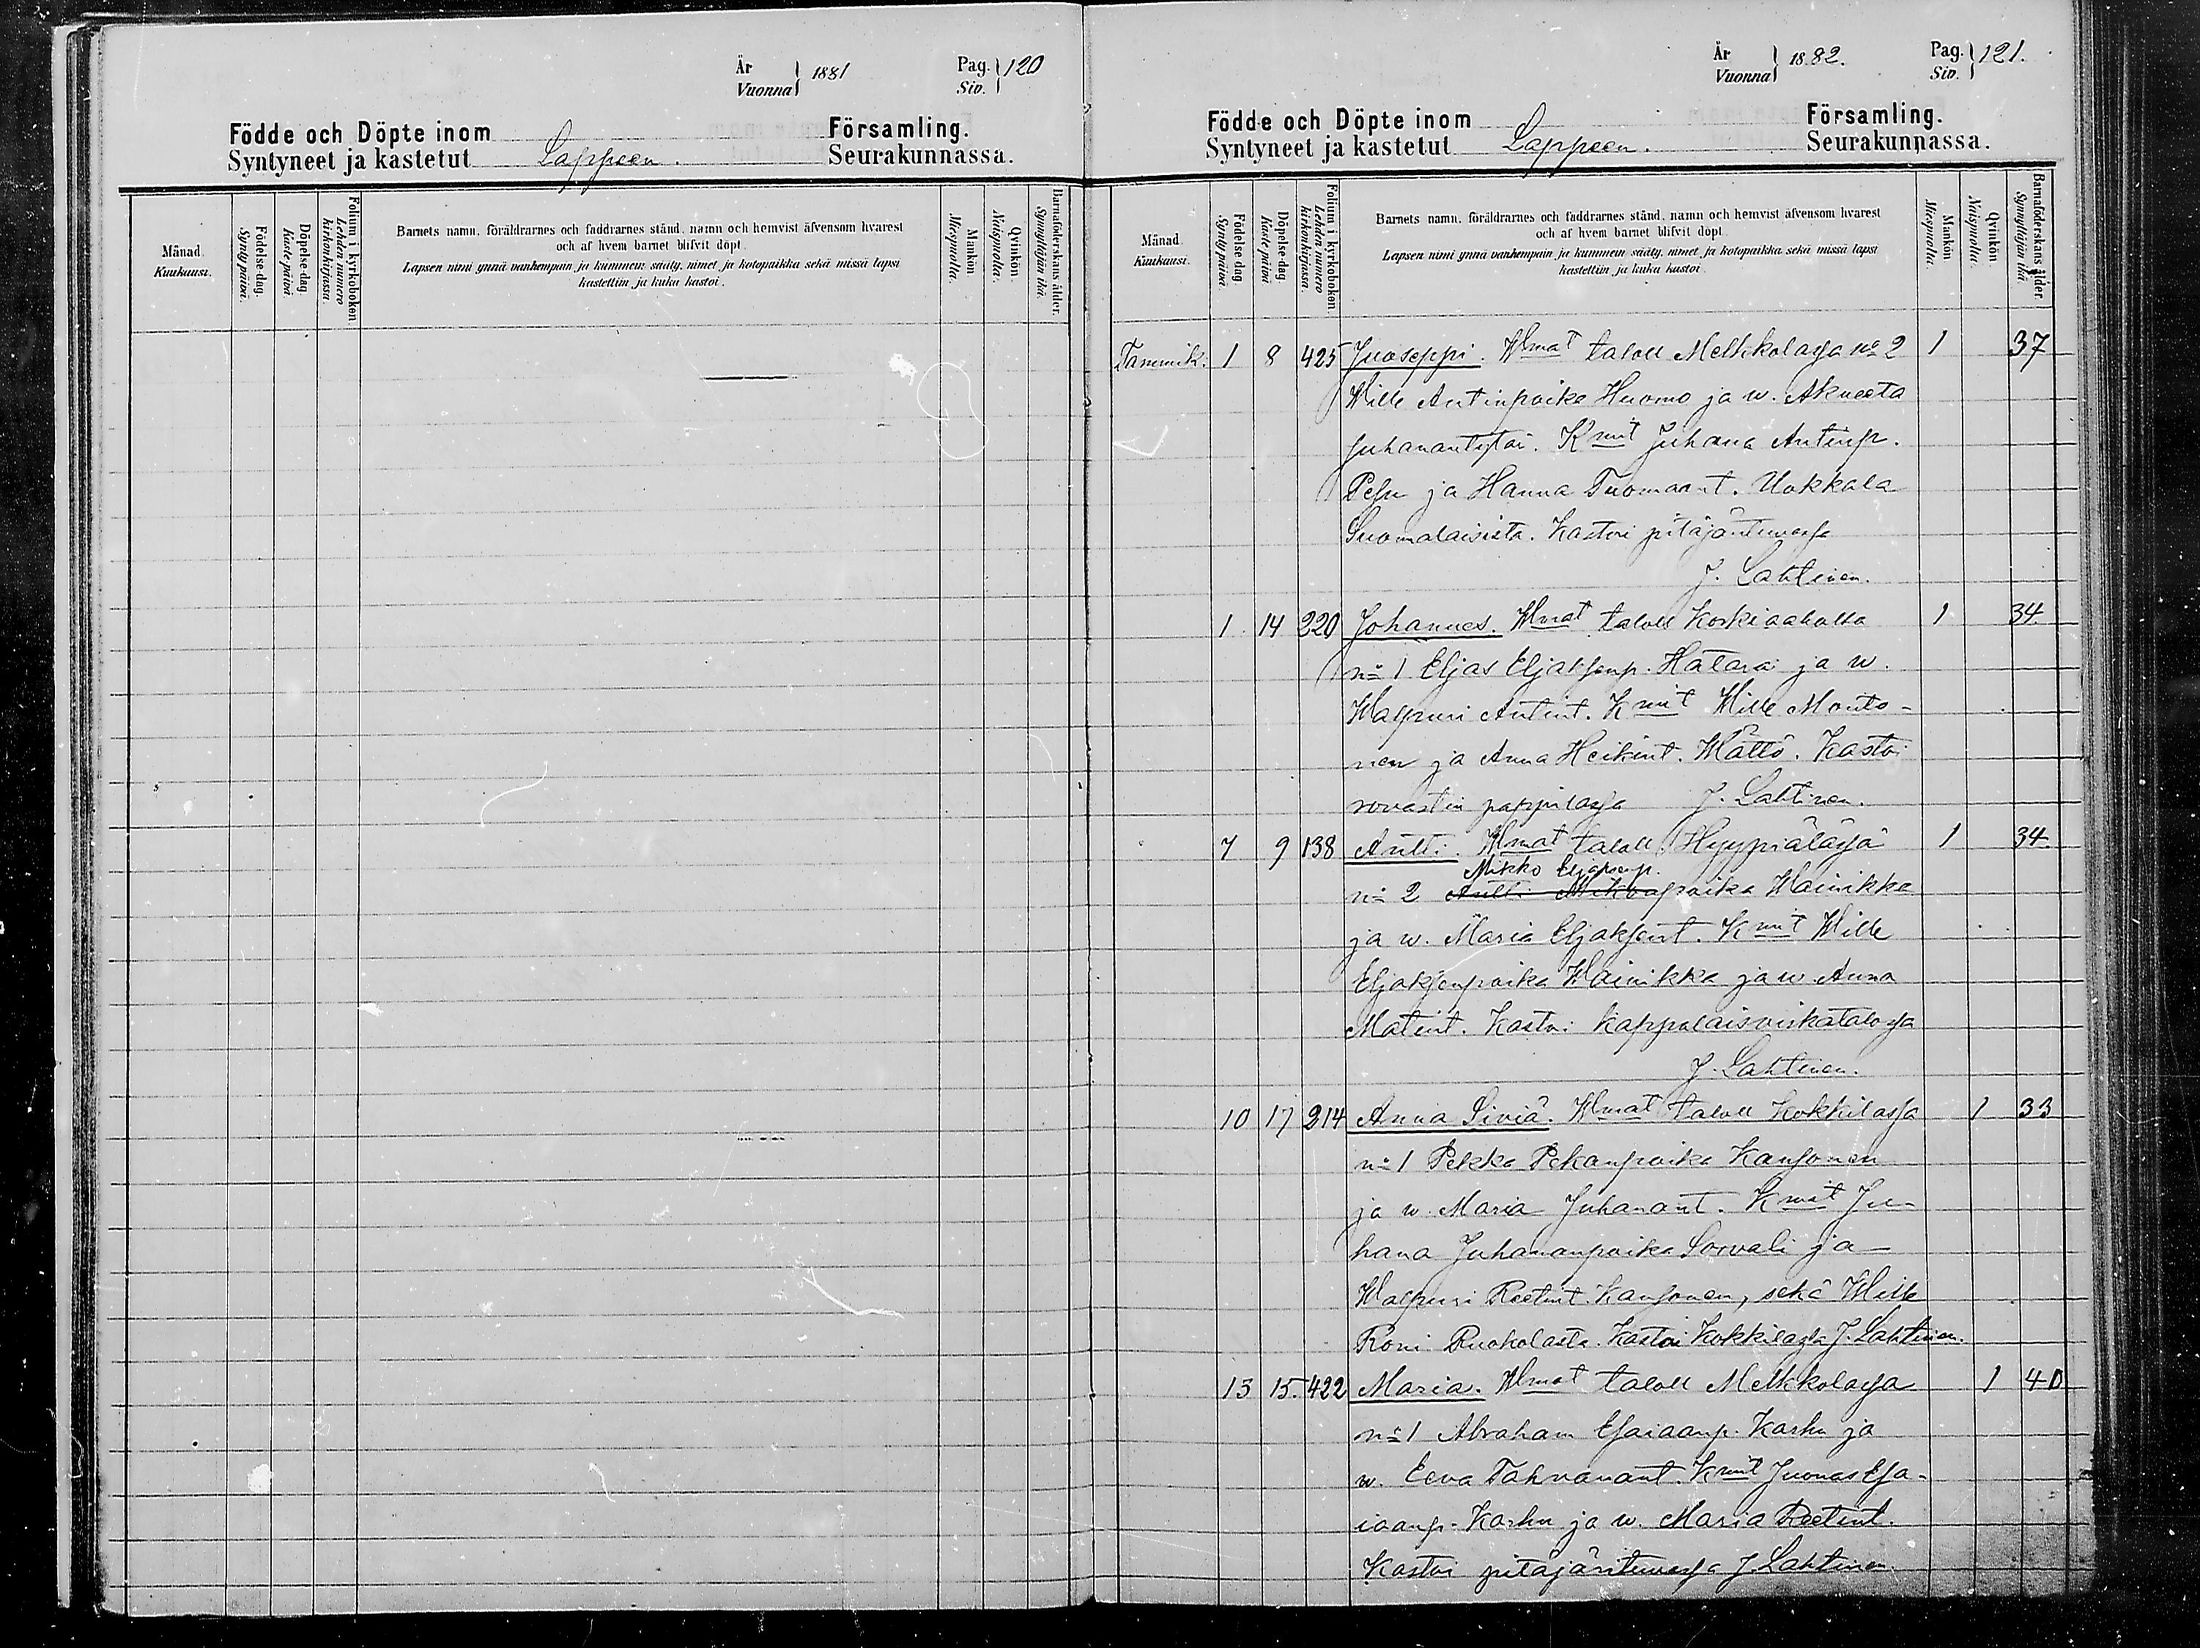 År
Vuonna } 1881
Pag.
Siv. } 120
Födde och Döpte inom Församling.
Syntyneet ja kastetut Lappeen. Seurakunnassa.
Månad.
Kuukausi.
Födelse dag.
Synty päivä.
Döpelse dag.
Kaste päivä
Folium i kyrkoboken
Lehden numero
kirkonkirjassa.
Barnets namn, föräldrarnes och faddrarnes stånd, namn och hemvist äfvensom hvarest
och af hvem barnet blifvit döpt.
Lapsen nimi ynnä vanhempain ja kummein sääty, nimet ja kotopaikka sekä missä lapsi
kastettiin ja kuka kastoi.
Mankön
Miespuolta.
Qvinkön.
Naispuolta.
Barnaföderskans ålder.
Synnyttäjän ikä.
År
Vuonna } 1882.
Pag.
Siv. } 121.
Födde och Döpte inom Församling.
Syntyneet ja kastetut Lappeen. Seurakunnassa.
Månad
Kuukausi.
Födelse dag
Synty päivä.
Döpelse dag.
Kaste päivä
Folium i kyrkoboken
Lehden numero
kirkonkirjassa.
Barnets namn, föräldrarnes och faddrarnes stånd, namn och hemvist äfvensom hvarest
och af hvem barnet blifvit döpt.
Lapsen nimi ynnä vanhempain ja kummein sääty, nimet ja kotopaikka sekä missä lapsi
kastettiin ja kuka kastoi.
Mankön
Miespuolta.
Qvinkön.
Naispuolta
Barnaföderskans ålder.
Synnyttäjän ikä.
Tammik. 1 8 425 Juoseppi. Wmat taloll Melkkolassa no 2 1 37
Wille Antinpoika Huomo ja w. Akneeta
Juhanantytär. Kmit Juhana Antinp.
Pesu ja Hanna Tuomaant. Uokkala
Suomalaisista. Kastoi pitäjäntuwassa
J. Lahtinen.
1 14 220 Johannes. Wmat taloll Koskiaholla 1 34
no 1 Eljas Eljaksenp. Hatara ja w.
Walpuri Antint. Kmit Wille Monto-
nen ja Anna Heikint. Wättö. Kastoi
rovastin pappilassa J. Lahtinen.
7 9 138 Antti. Wmat taloll Hyypiälässä 1 34
Mikko Eljaksenp.
no 2 Antti Mikonpoika Wainikka
ja w. Maria Eljaksent. Kmit Wille
Eljaksenpoika Wainikka ja w Anna
Matint. Kastoi kappalaisvirkatalossa
J. Lahtinen.
10 17 214 Anna Siviä. Wmat taloll Kokkilassa 1 33
no 1 Pekka Pekanpoika Kansonen
ja w. Maria Juhanant. Kmit Ju-
hana Juhananpoika Sorvali ja
Walpuri Reetint. Kansonen, sekä Wille
Roni Ruokolasta. Kastoi Kokkilassa J. Lahtinen.
13 15. 422 Maria. Wmat taloll Melkkolassa 1 40
no 1 Abraham Esaiaanp. Karhu ja
w. Eeva Tahvanant. Kmit Juonas Esa-
iaanp. Karhu ja w. Maria Reetint.
Kastoi pitäjäntuwassa J. Lahtinen.